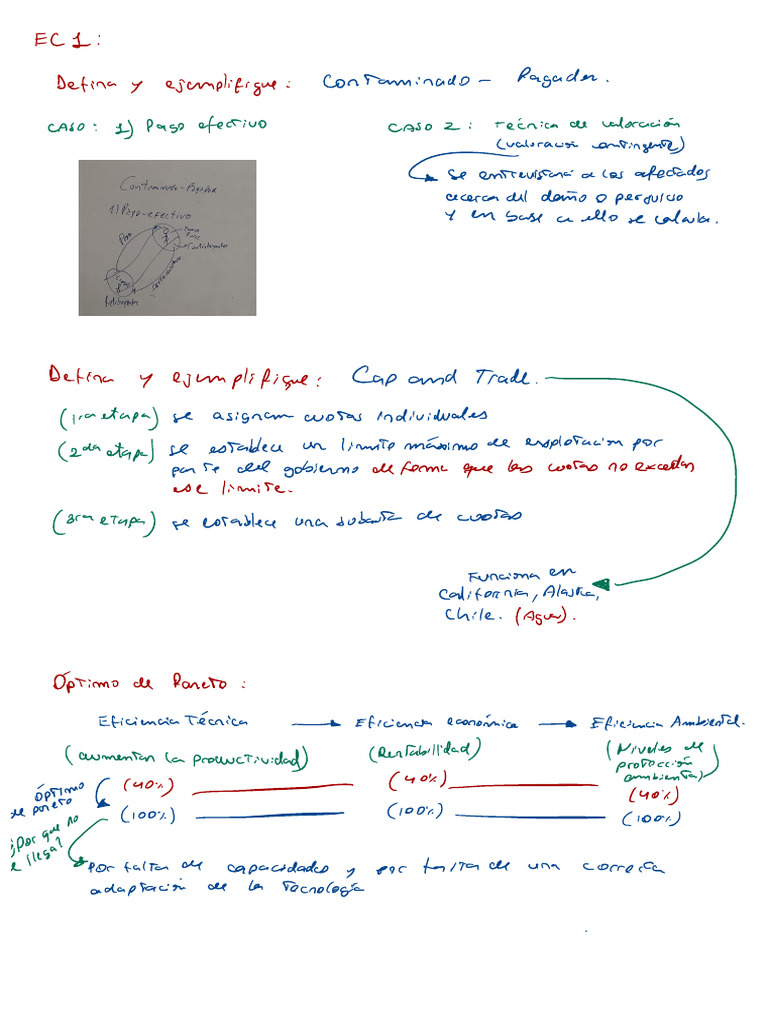 EC1:
Defina y ejemplifique: Contaminado - Pagador.
CASO: 1) Pago efectivo
Contaminado - Pagador
1) Pago-efectivo
Pago
CASO 2: Técnica de valoración
(valoración contingente)
se entrevistará a los afectados
acerca del daño o perjuicio
y en base a ello se calcula.
Defina y ejemplifique: Cap and Trade.
(1ra etapa) se asignan cuotas individuales
(2da etapa) se establece un limite máximo de explotación por
parte del gobierno de forma que las cuotas no excedan
ese limite.
(3ra etapa) se establece una subasta de cuotas
Funciona en
California, Alaska,
Chile. (Agua).
Óptimo de Pareto:
Eficiencia Técnica → Eficiencia económica → Eficiencia Ambiental.
(aumentan la productividad) (Rentabilidad) (Niveles de
protección
ambiental)
Óptimo
de pareto
(40%) (40%) (40%)
(100%) (100%) (100%)
¿Por que no
se llega?
Por falta de capacidades y por falta de una correcta
adaptación de la tecnología